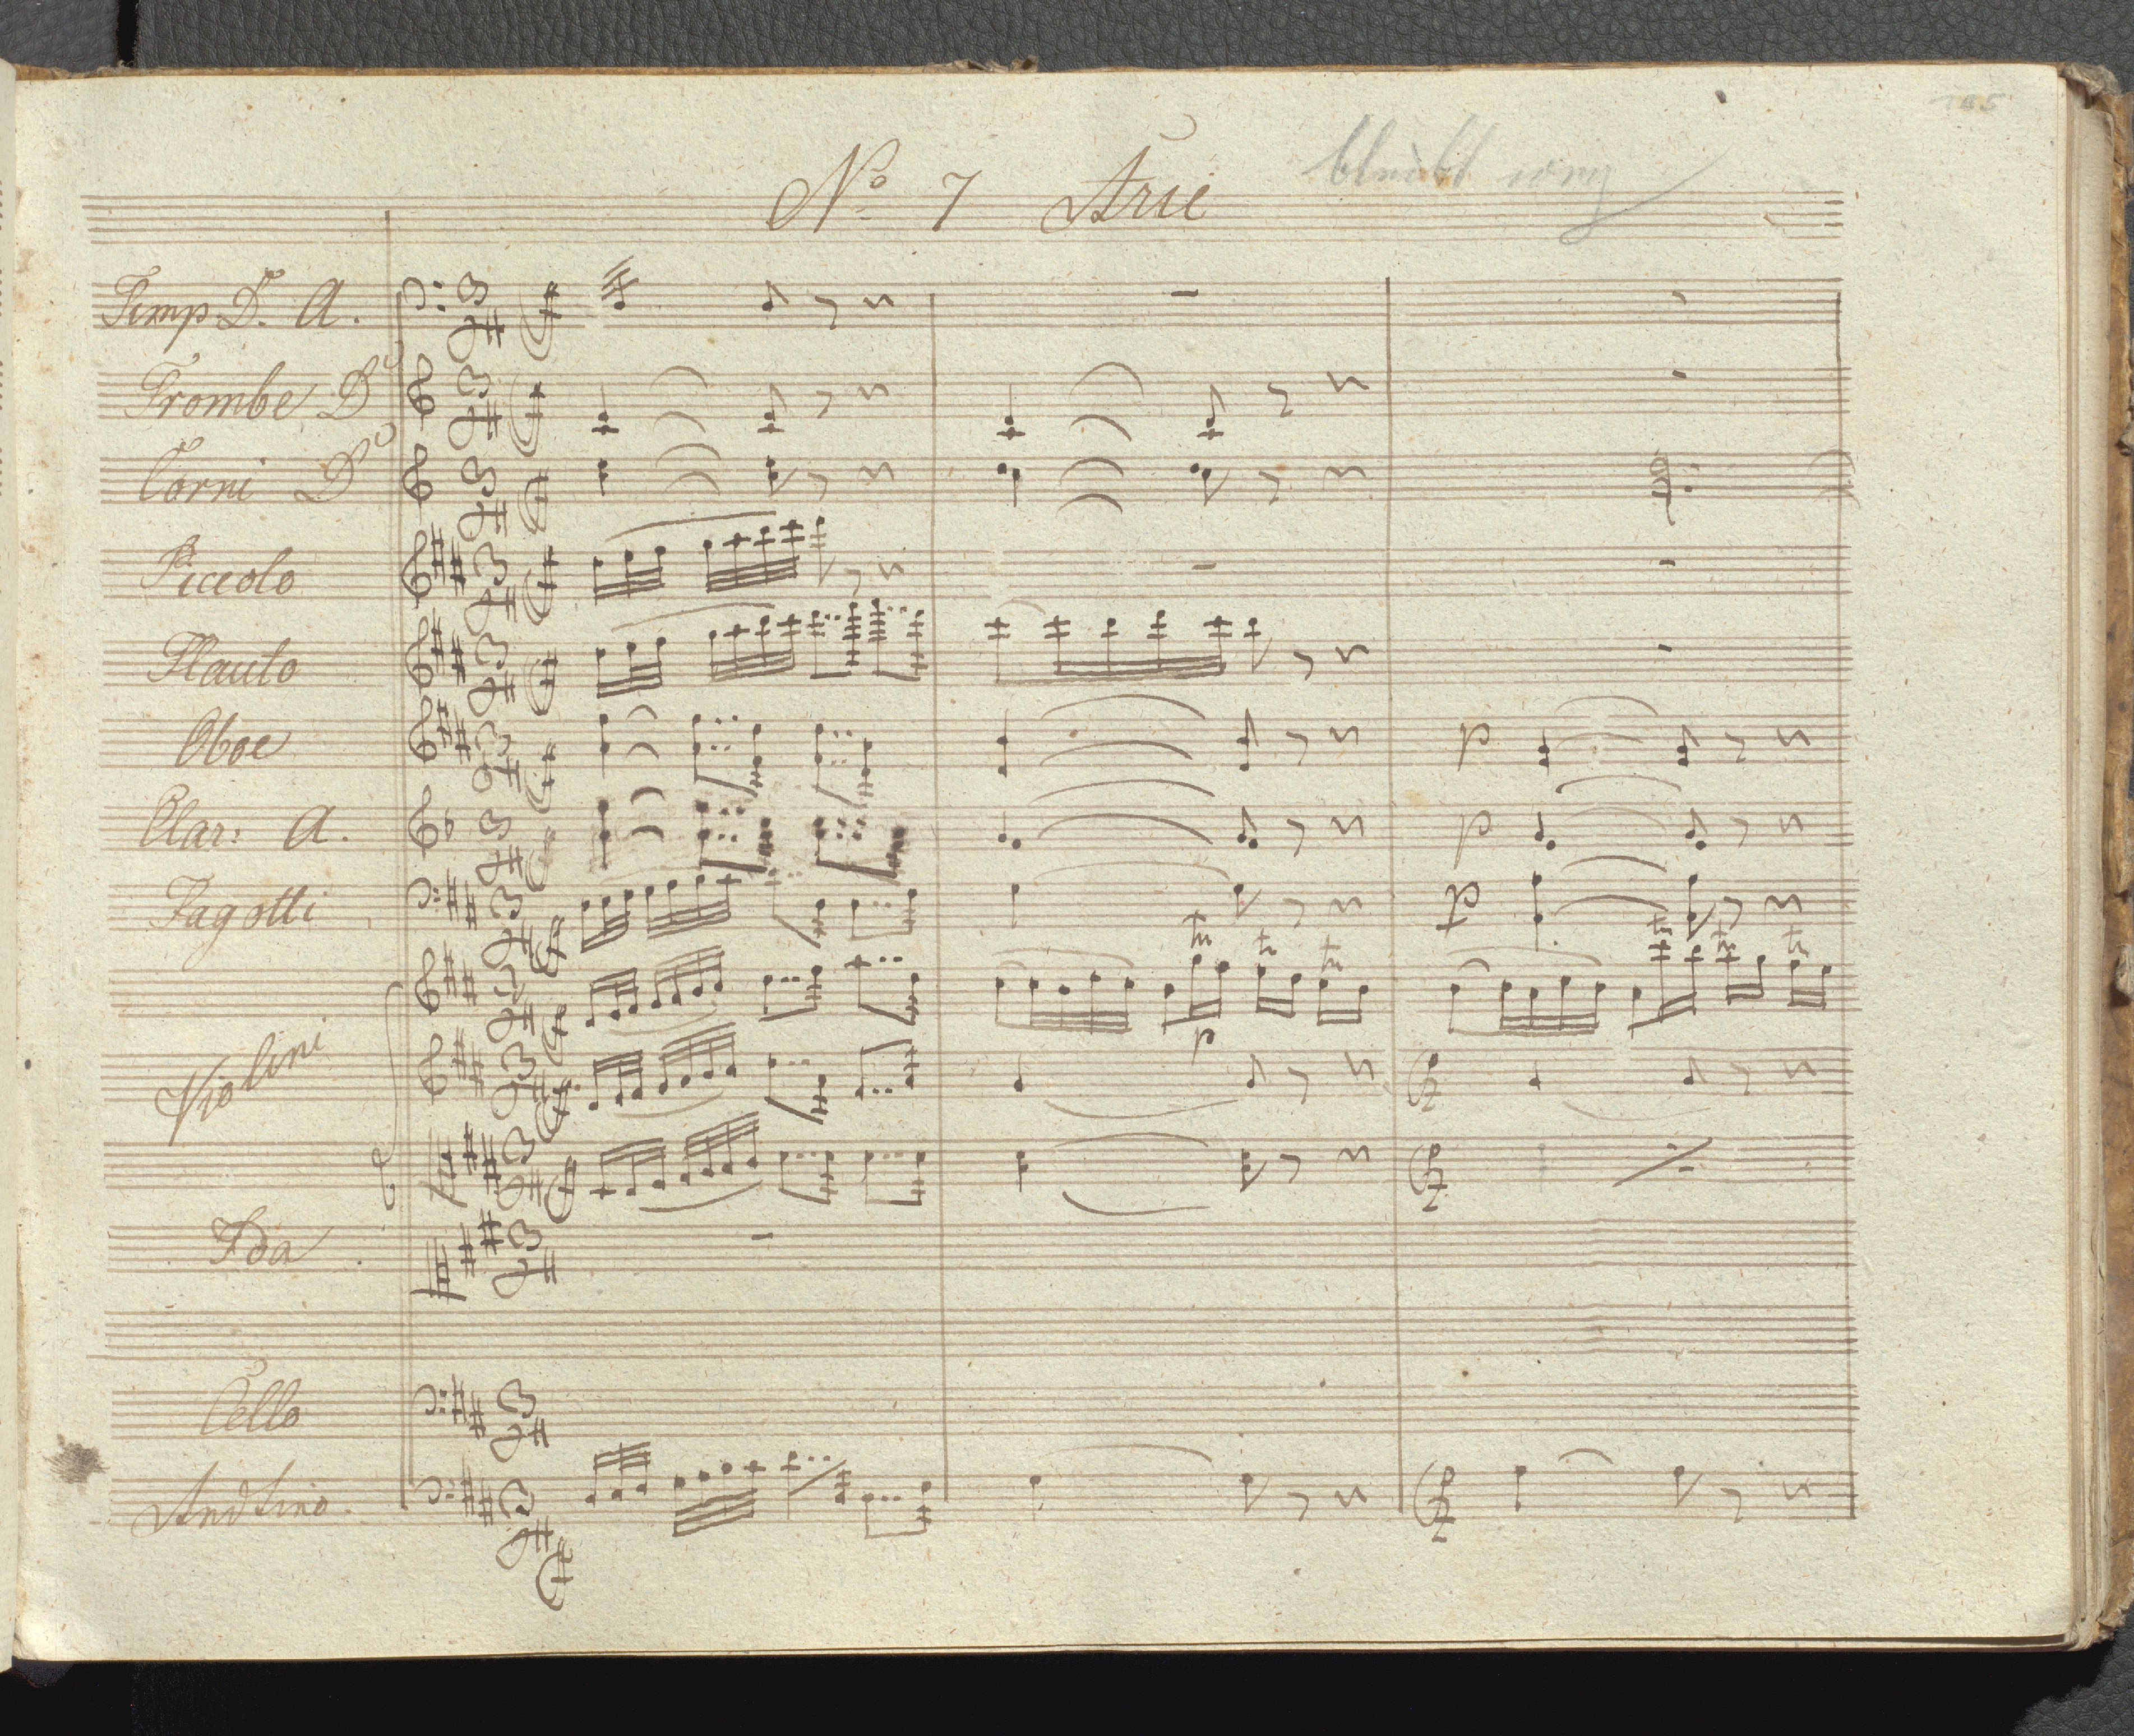 165
No 7 Arie bleibt weg
Timp D. A.
Trombe D
Corni D
Piccolo
Flauto
Oboe
Clar: A.
Fagotti
p
p
p
tr tr tr tr tr tr tr
p
Violini
Ida
Cello
Andtino.